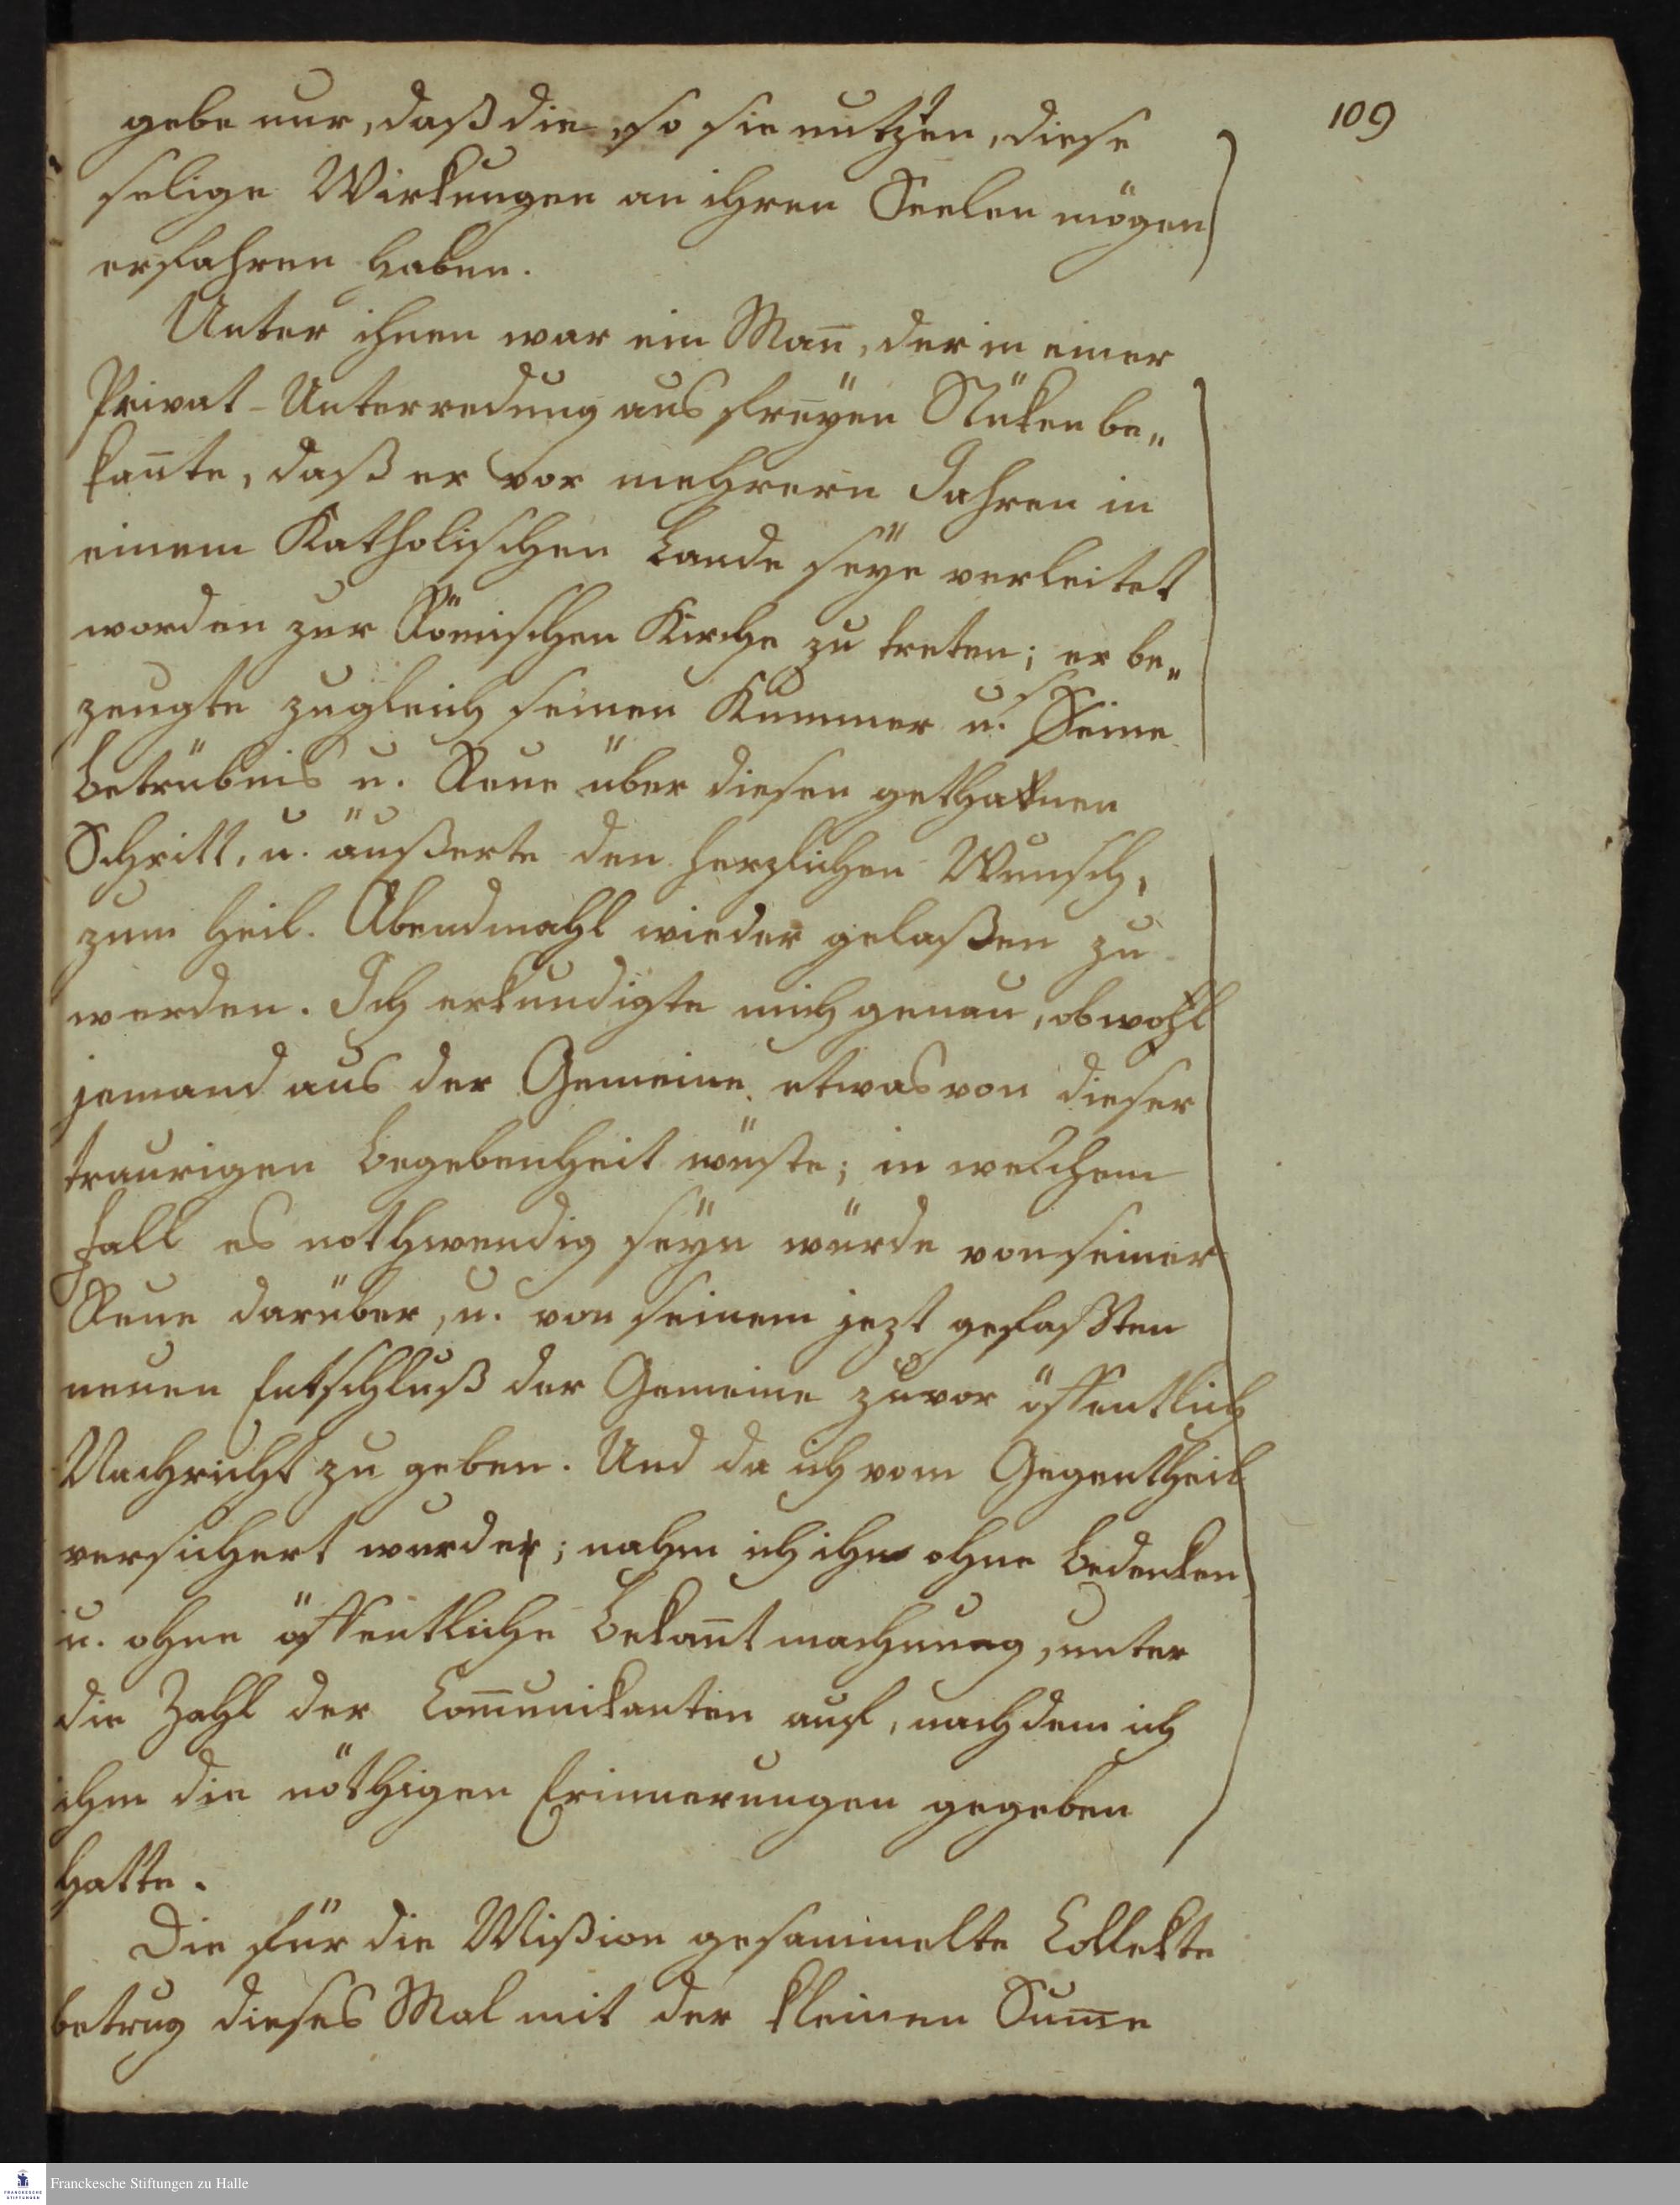 109
gebe nur, daß die, so sie nutzten, diese
selige Wirkungen an ihren Seelen mögen
erfahren haben.
Unter ihnen war ein Man̅, der in einer
Privat-Unterredung aus freÿen Stüken be„
kan̅te, daß er vor mehrern Jahren in
einem Katholischen Lande seÿe verleitet
worden zur Römischen Kirche zu treten; er be„
zeugte zugleich seinen Kummer u. seine
Betrübnis u. Reue über diesen gethanen
Schritt, u. äußerte den herzlichen Wunsch,
zum heil. Abendmahl wieder gelaßen zu
werden. Ich erkundigte mich genau, ob wohl
jemand aus der Gemeine etwas von dieser
traurigen Begebenheit wüste; in welchem
Fall es nothwendig seÿn würde von seiner
Reue darüber, u. von seinem jezt gefaßten
neuen Entschluß der Gemeine zuvor öffentlich
Nachricht zu geben. Und da ich vom Gegentheil
versichert wurde; nahm ich ihn ohne Bedenken
u. ohne öffentliche Bekan̅tmachung, unter
die Zahl der Com̅unikanten auf, nachdem ich
ihm die nöthigen Erinnerungen gegeben
hatte.
Die für die Mißion gesammelte Collekte
betrug dieses Mal mit der kleinen Sum̅e
Franckesche Stiftungen zu Halle
FRANCKESCHE
STIFTUNGEN